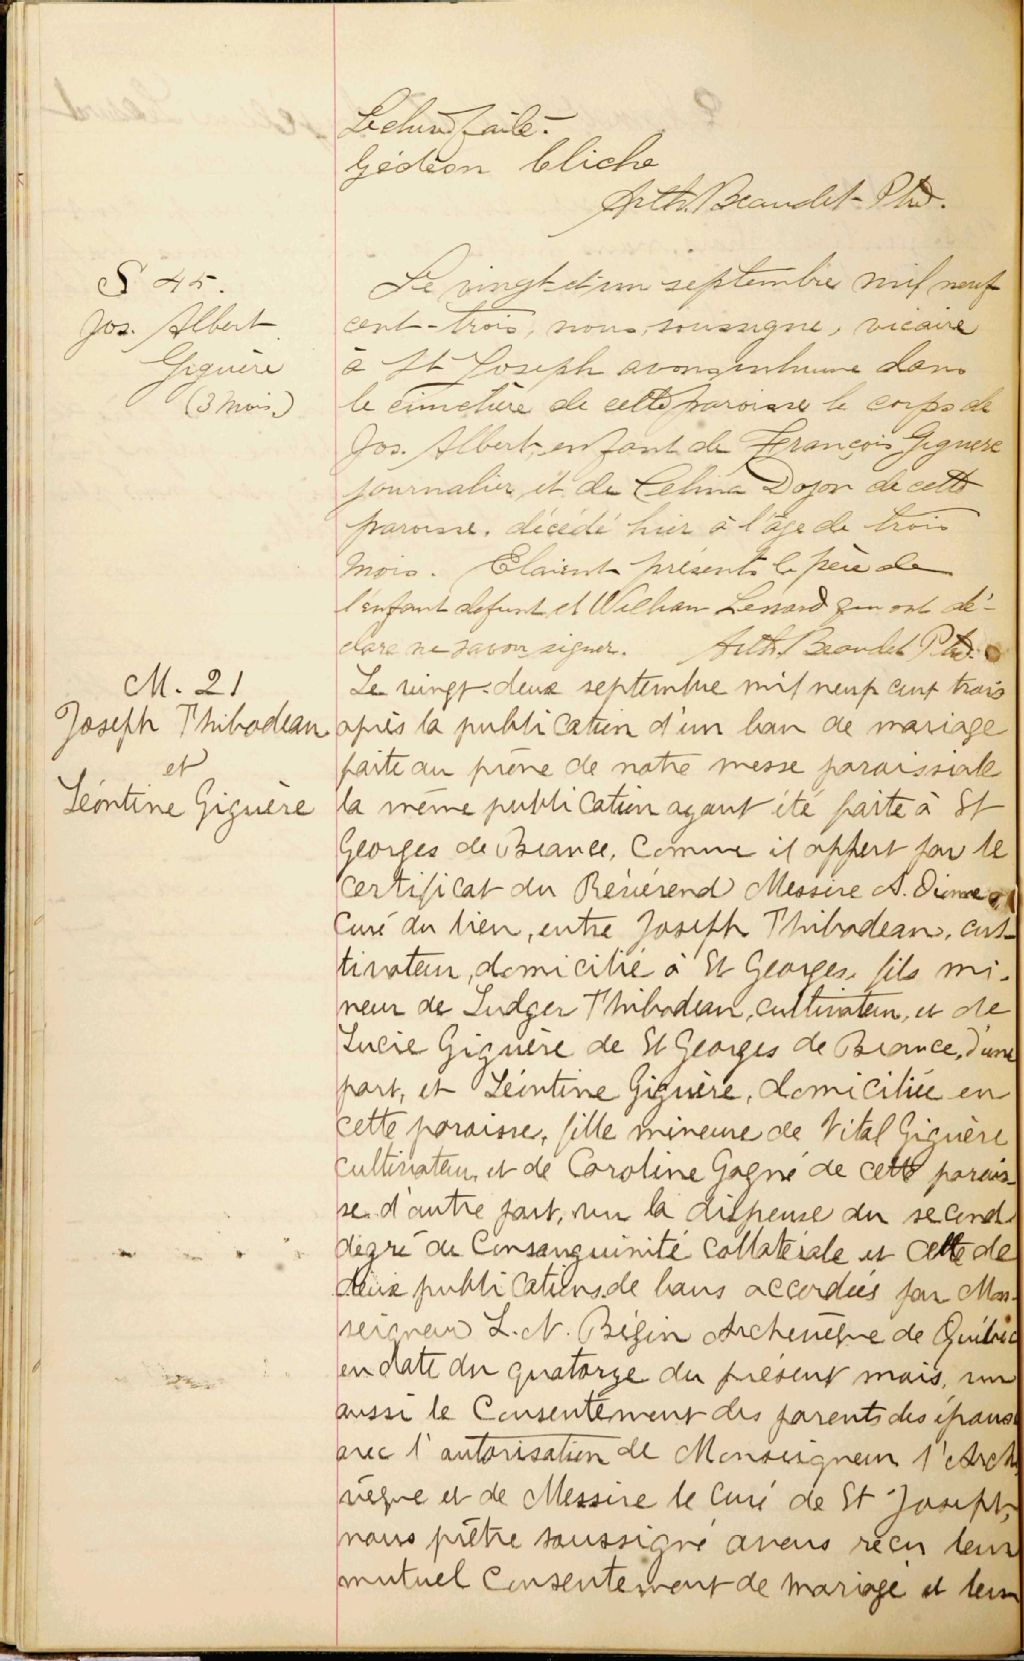 Lecture faite.
Gédéon Cliche
Arth. Beaudet Ptre.
S 45.
Jos. Albert
Giguère
(3 mois)
Le vingt-et-un septembre mil neuf
cent-trois, nous, soussigné, vicaire
à St Joseph avons inhumé dans
le cimetière de cette paroisse le corps de
Jos. Albert, enfant de François Giguere
journalier et de Celina Doyon de cette
paroisse, décédé hier à l'âge de trois
mois. Etaient présents le père de
l'enfant defunt et William Lessard qui ont dé-
claré ne savoir signer. Arth. Beaudet Ptre.
M. 21
Joseph Thibodeau
et
Léontine Giguère
Le vingt-deux septembre mil neuf cent trois
après la publication d'un ban de mariage
faite au prône de notre messe paroissiale
la même publication ayant été faite à St
Georges de Beauce, comme il appert par le
certificat du Révérend Messire A. Dionne
Curé du lieu, entre Joseph Thibodeau, cul-
tivateur, domicilié à St Georges, fils mi-
neur de Ludger Thibodeau, cultivateur, et de
Lucie Giguère de St Georges de Beauce, d'une
part, et Léontine Giguère, domiciliée en
cette paroisse, fille mineure de Vital Giguère
cultivateur, et de Caroline Gagné de cette parois-
se d'autre part, vu la dispense du second
dégré de Consanguinité collatérale et celle de
deux publications de bans accordées par Mon-
seigneur L. N. Bégin Archevêque de Québec
en date du quatorze du présent mois, vu
aussi le Consentement des parents des époux
avec l'autorisation de Monseigneur l'Arch
vêque et de Messire le Curé de St Joseph,
nous prêtre soussigné avons reçu leur
mutuel Consentement de mariage et leur